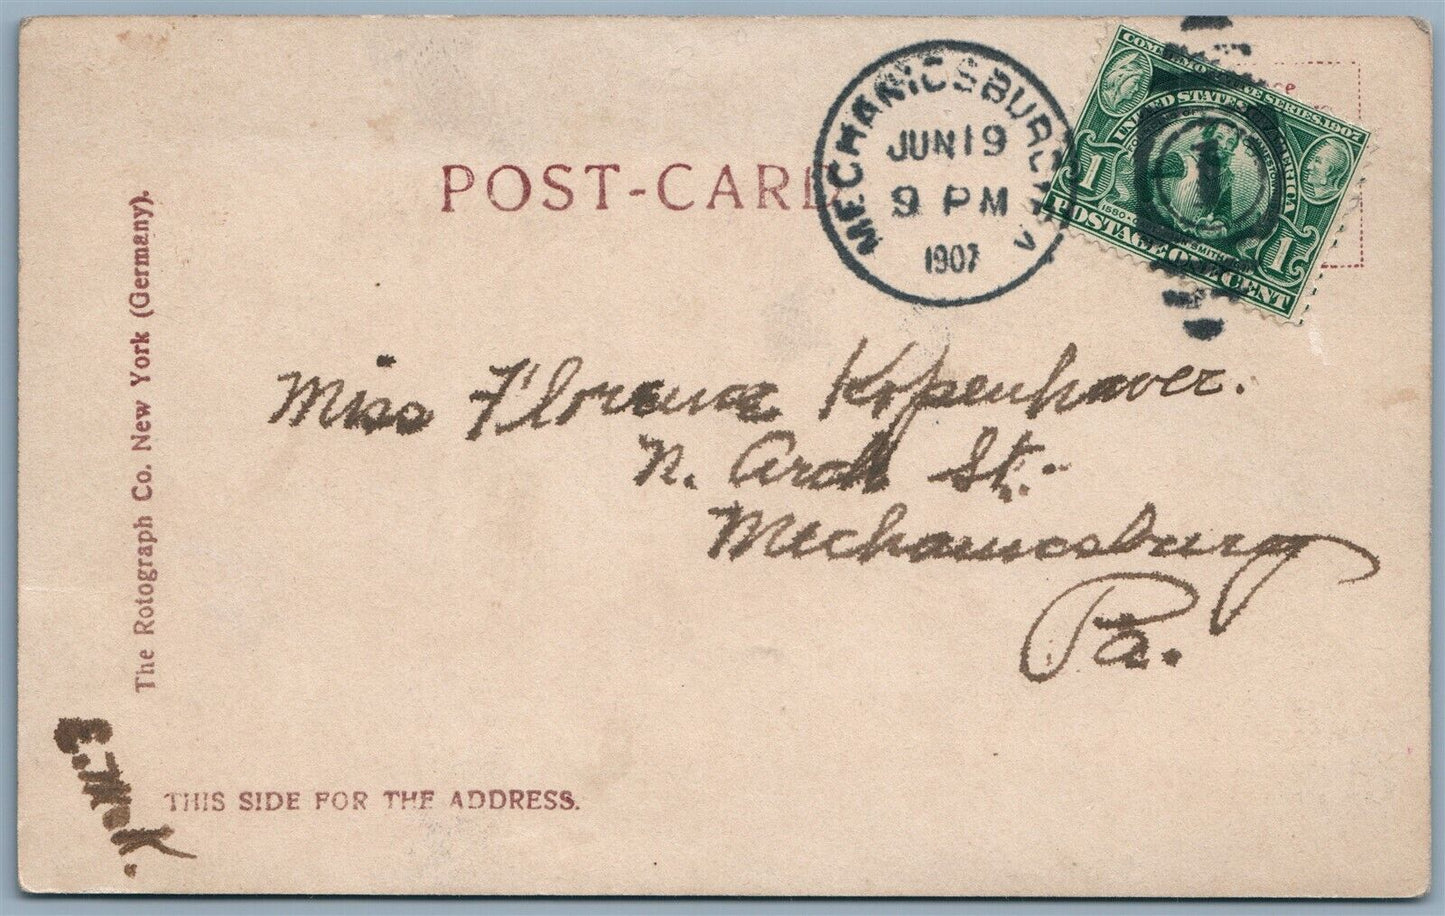 POST-CARD
MECHANICSBURG
JUN 19
9 PM
1907
COMMEMORATIVE SERIES 1907
UNITED STATES OF AMERICA
1 1
POSTAGE ONE CENT
1
Miss Florence Kopenhaver.
N. Arch St.
Mechanicsburg
Pa.
The Rotograph Co. New York (Germany).
E. M. K.
THIS SIDE FOR THE ADDRESS.